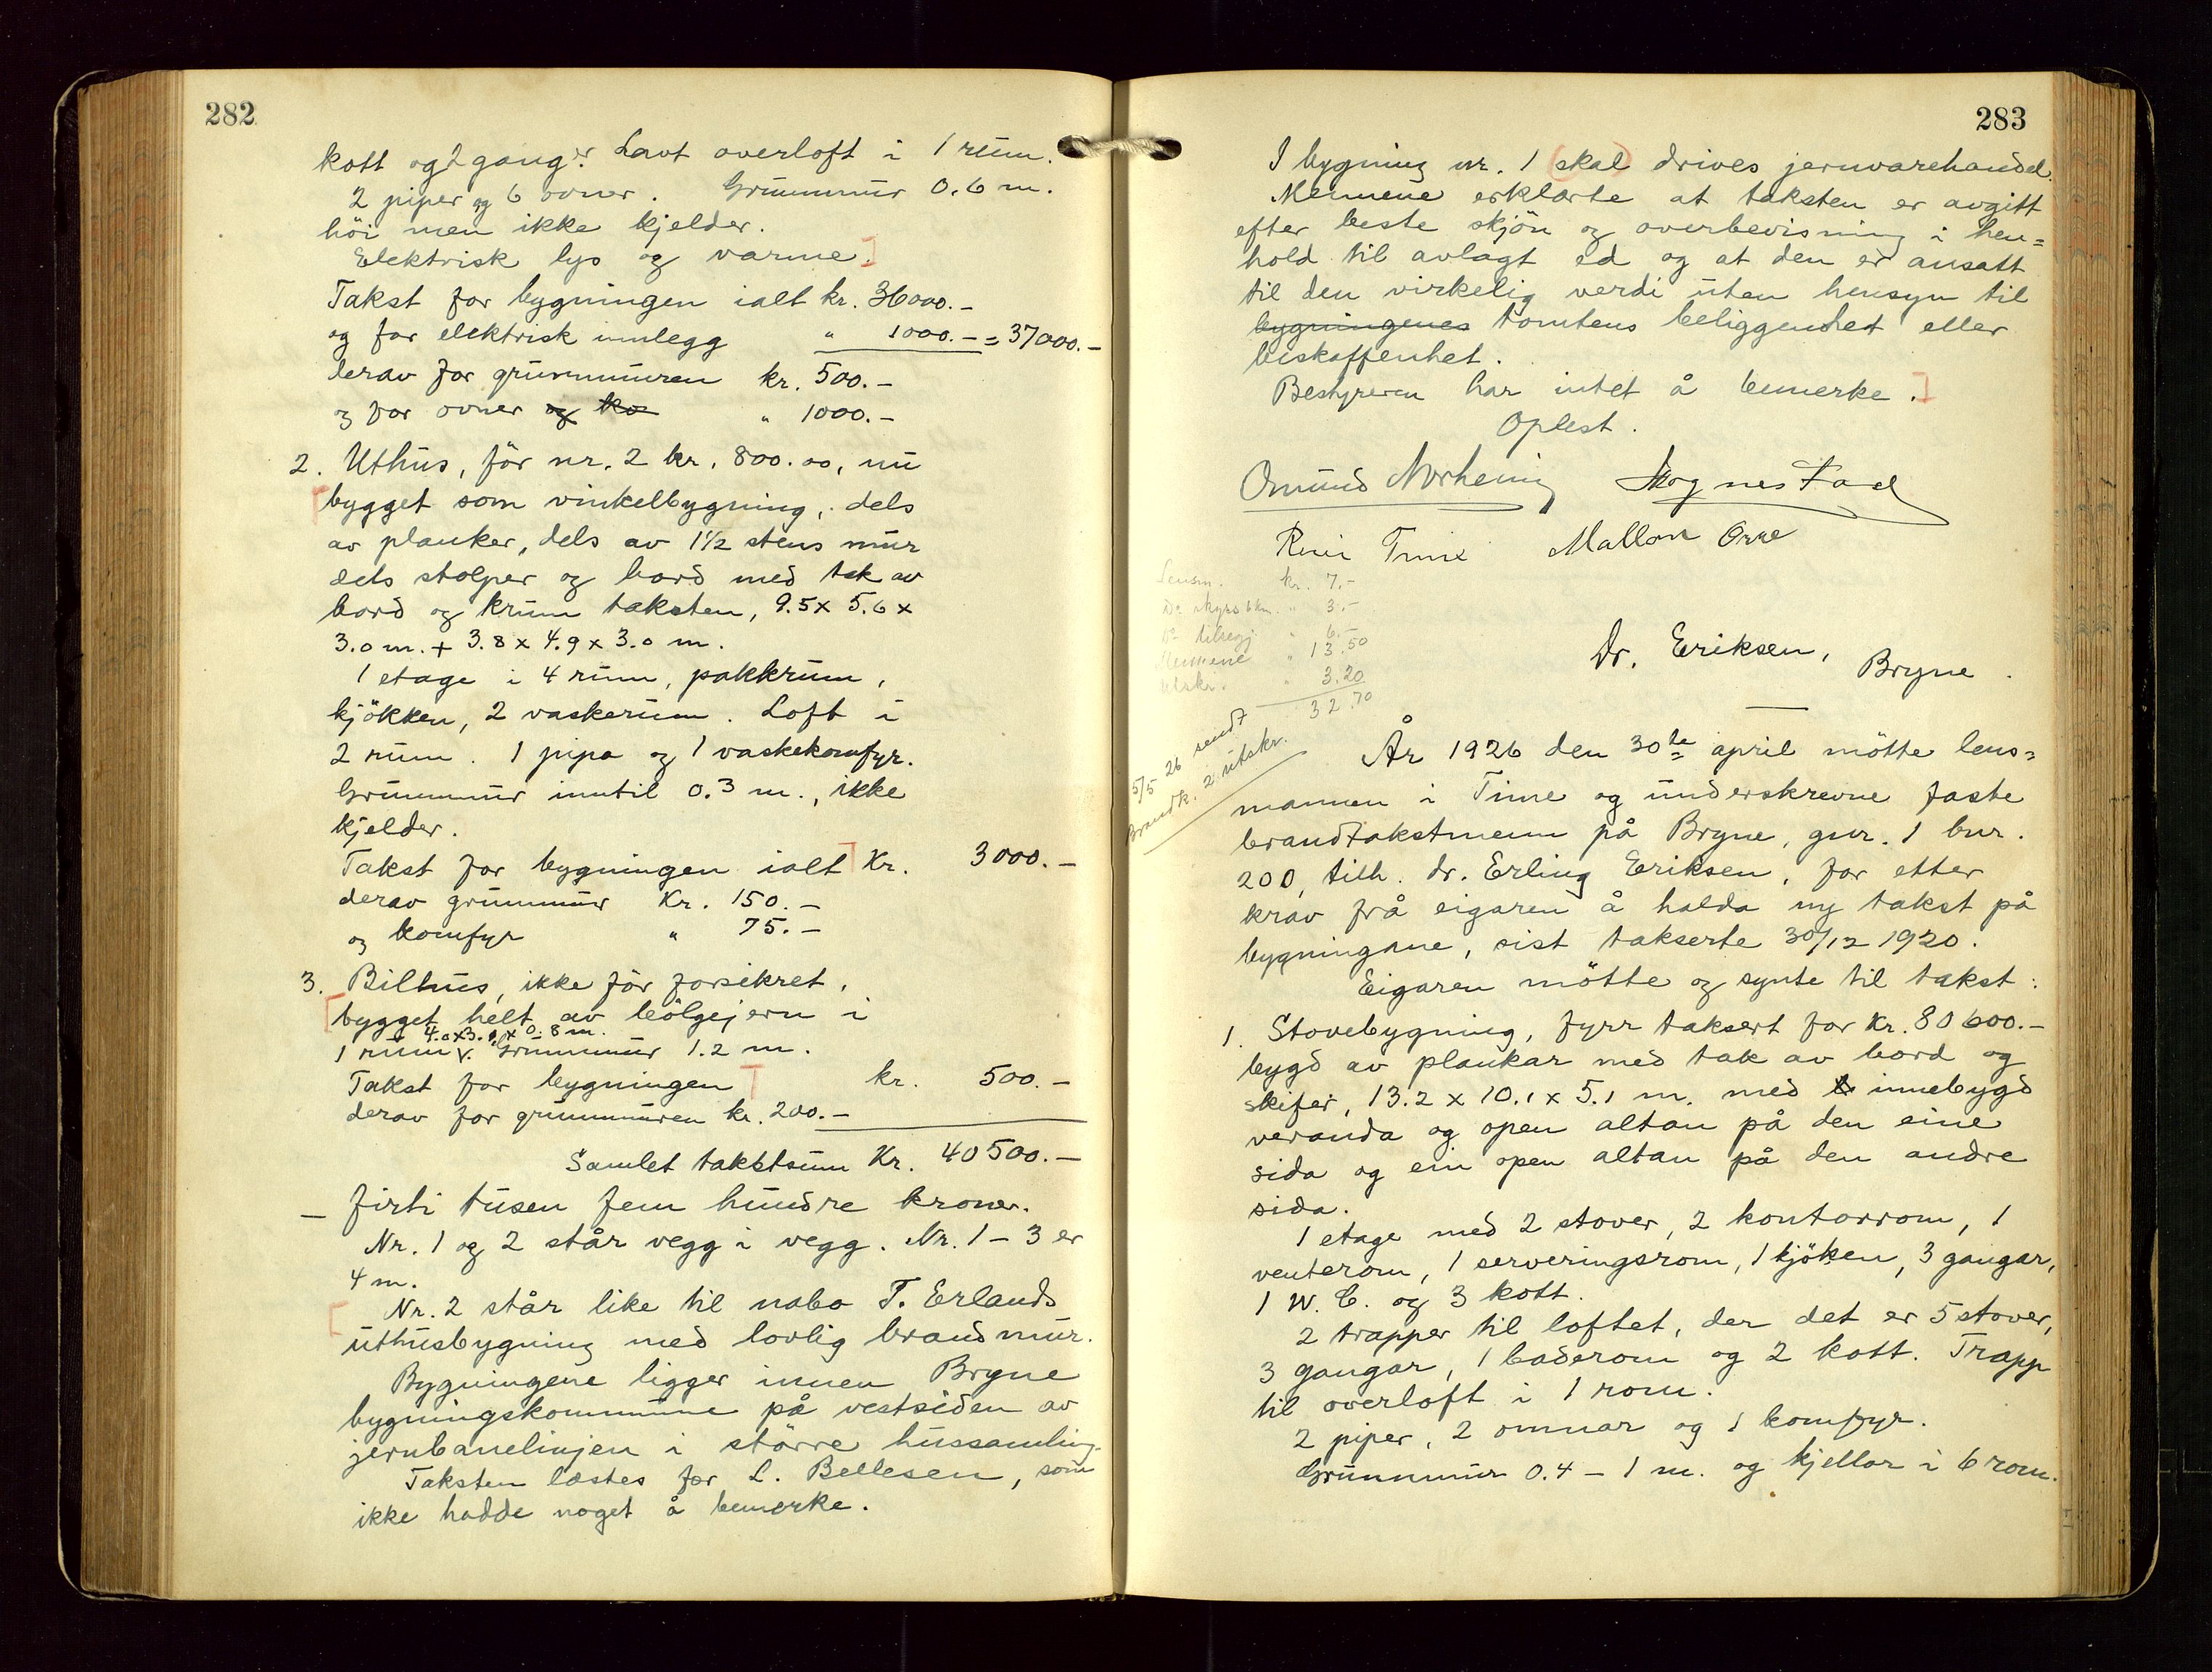 282
kott og 2 ganger. Lavt overloft i 1 rum.
2 piper og 6 ovner. Grunnmur 0.6 m.
höi men ikke kjelder.
Elektrisk lys og varme.
Takst for bygningen ialt kr. 36000.-
og for elektrisk innlegg " 1000.- = 37000.-
derav for grunnmuren kr. 500.-
og for ovner og ko " 1000.-
2. Uthus, för nr. 2 kr. 800.00, nu
bygget som vinkelbygning, dels
av planker, dels av 1 1/2 stens mur
dels stolper og bord med tak av
bord og krum taksten, 9.5 x 5.6 x
3.0 m. + 3.8 x 4.9 x 3.0 m.
1 etage i 4 rum, pakkrum,
kjökken, 2 vaskerum. Loft i
2 rum. 1 pipa og 1 vaskekomfyr.
Grunnmur inntil 0.3 m., ikke
kjelder.
Takst for bygningen ialt Kr. 3000.-
derav grunnmur Kr. 150.-
og komfyr " 75.-
3. Bilhus, ikke för forsikret,
bygget helt av bölgejern i
4.0 x 3.0 x 0.8 m.
1 rum v. Grunnmur 1.2 m.
Takst for bygningen kr. 500.-
derav for grunnmuren kr. 200.-
Samlet takstsum Kr. 40500.-
- firti tusen fem hundre kroner.
Nr. 1 og 2 står vegg i vegg. Nr. 1 - 3 er
4 m.
Nr. 2 står like til nabo T. Erlands
uthusbygning med lovlig brandmur.
Bygningene ligger innen Bryne
bygningskommune på vestsiden av
jernbanelinjen i större hussamling.
Taksten læstes for L. Bellesen, som
ikke hadde noget å bemerke.
283
I bygning nr. 1 (skal) drives jernvarehandel.
Mennene erklærte at taksten er avgitt
efter beste skjön og overbevisning i hen=
hold til avlagt ed og at den er ansatt
til den virkelig verdi uten hensyn til
bygningenes tomtens beliggenhet eller
beskaffenhet.
Bestyreren har intet å bemerke.
Oplest.
Omund Norheim Magnes Fael
Rein Time Mallon Orre
Lensm. kr. 7.-
Do skyss 6 km. " 3.-
Do tilsegj. " 6.-
Mennene " 13.50
Utskr. " 3.20
32.70
5/5 26 sendt
Brandk. 2 utskr.
Dr. Eriksen,
Bryne.
År 1926 den 30te april mötte lens=
mannen i Time og underskrevne faste
brandtakstmenn på Bryne, gnr. 1 bnr.
200, tilh. dr. Erling Eriksen, for etter
krav frå eigaren å halda ny takst på
bygningane, sist takserte 30/12 1920.
Eigaren mötte og synte til takst:
1. Stovebygning, fyrr taksert for Kr. 80600.-
bygd av plankar med tak av bord og
skifer, 13.2 x 10.1 x 5.1 m. med b innebygd
veranda og open altan på den eine
sida og ein open altan på den andre
sida.
1 etage med 2 stover, 2 kontorrom, 1
venterom, 1 serveringsrom, 1 kjöken, 3 gangar,
1 W. C. og 3 kott.
2 trapper til loftet, der det er 5 stover,
3 gangar, 1 baderom og 2 kott. Trapp
til overloft i 1 rom.
2 piper, 2 omnar og 1 komfyr.
Grunnmur 0.4 - 1 m. og kjellar i 6 rom.